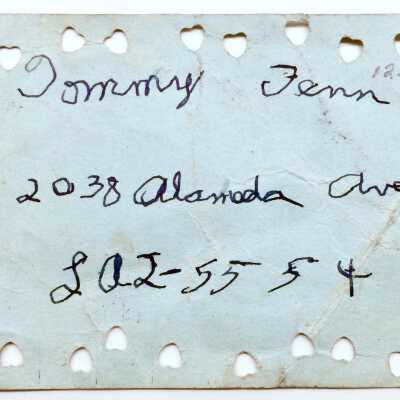 Tommy Fenn
2038 Alameda Ave
LA2-5554